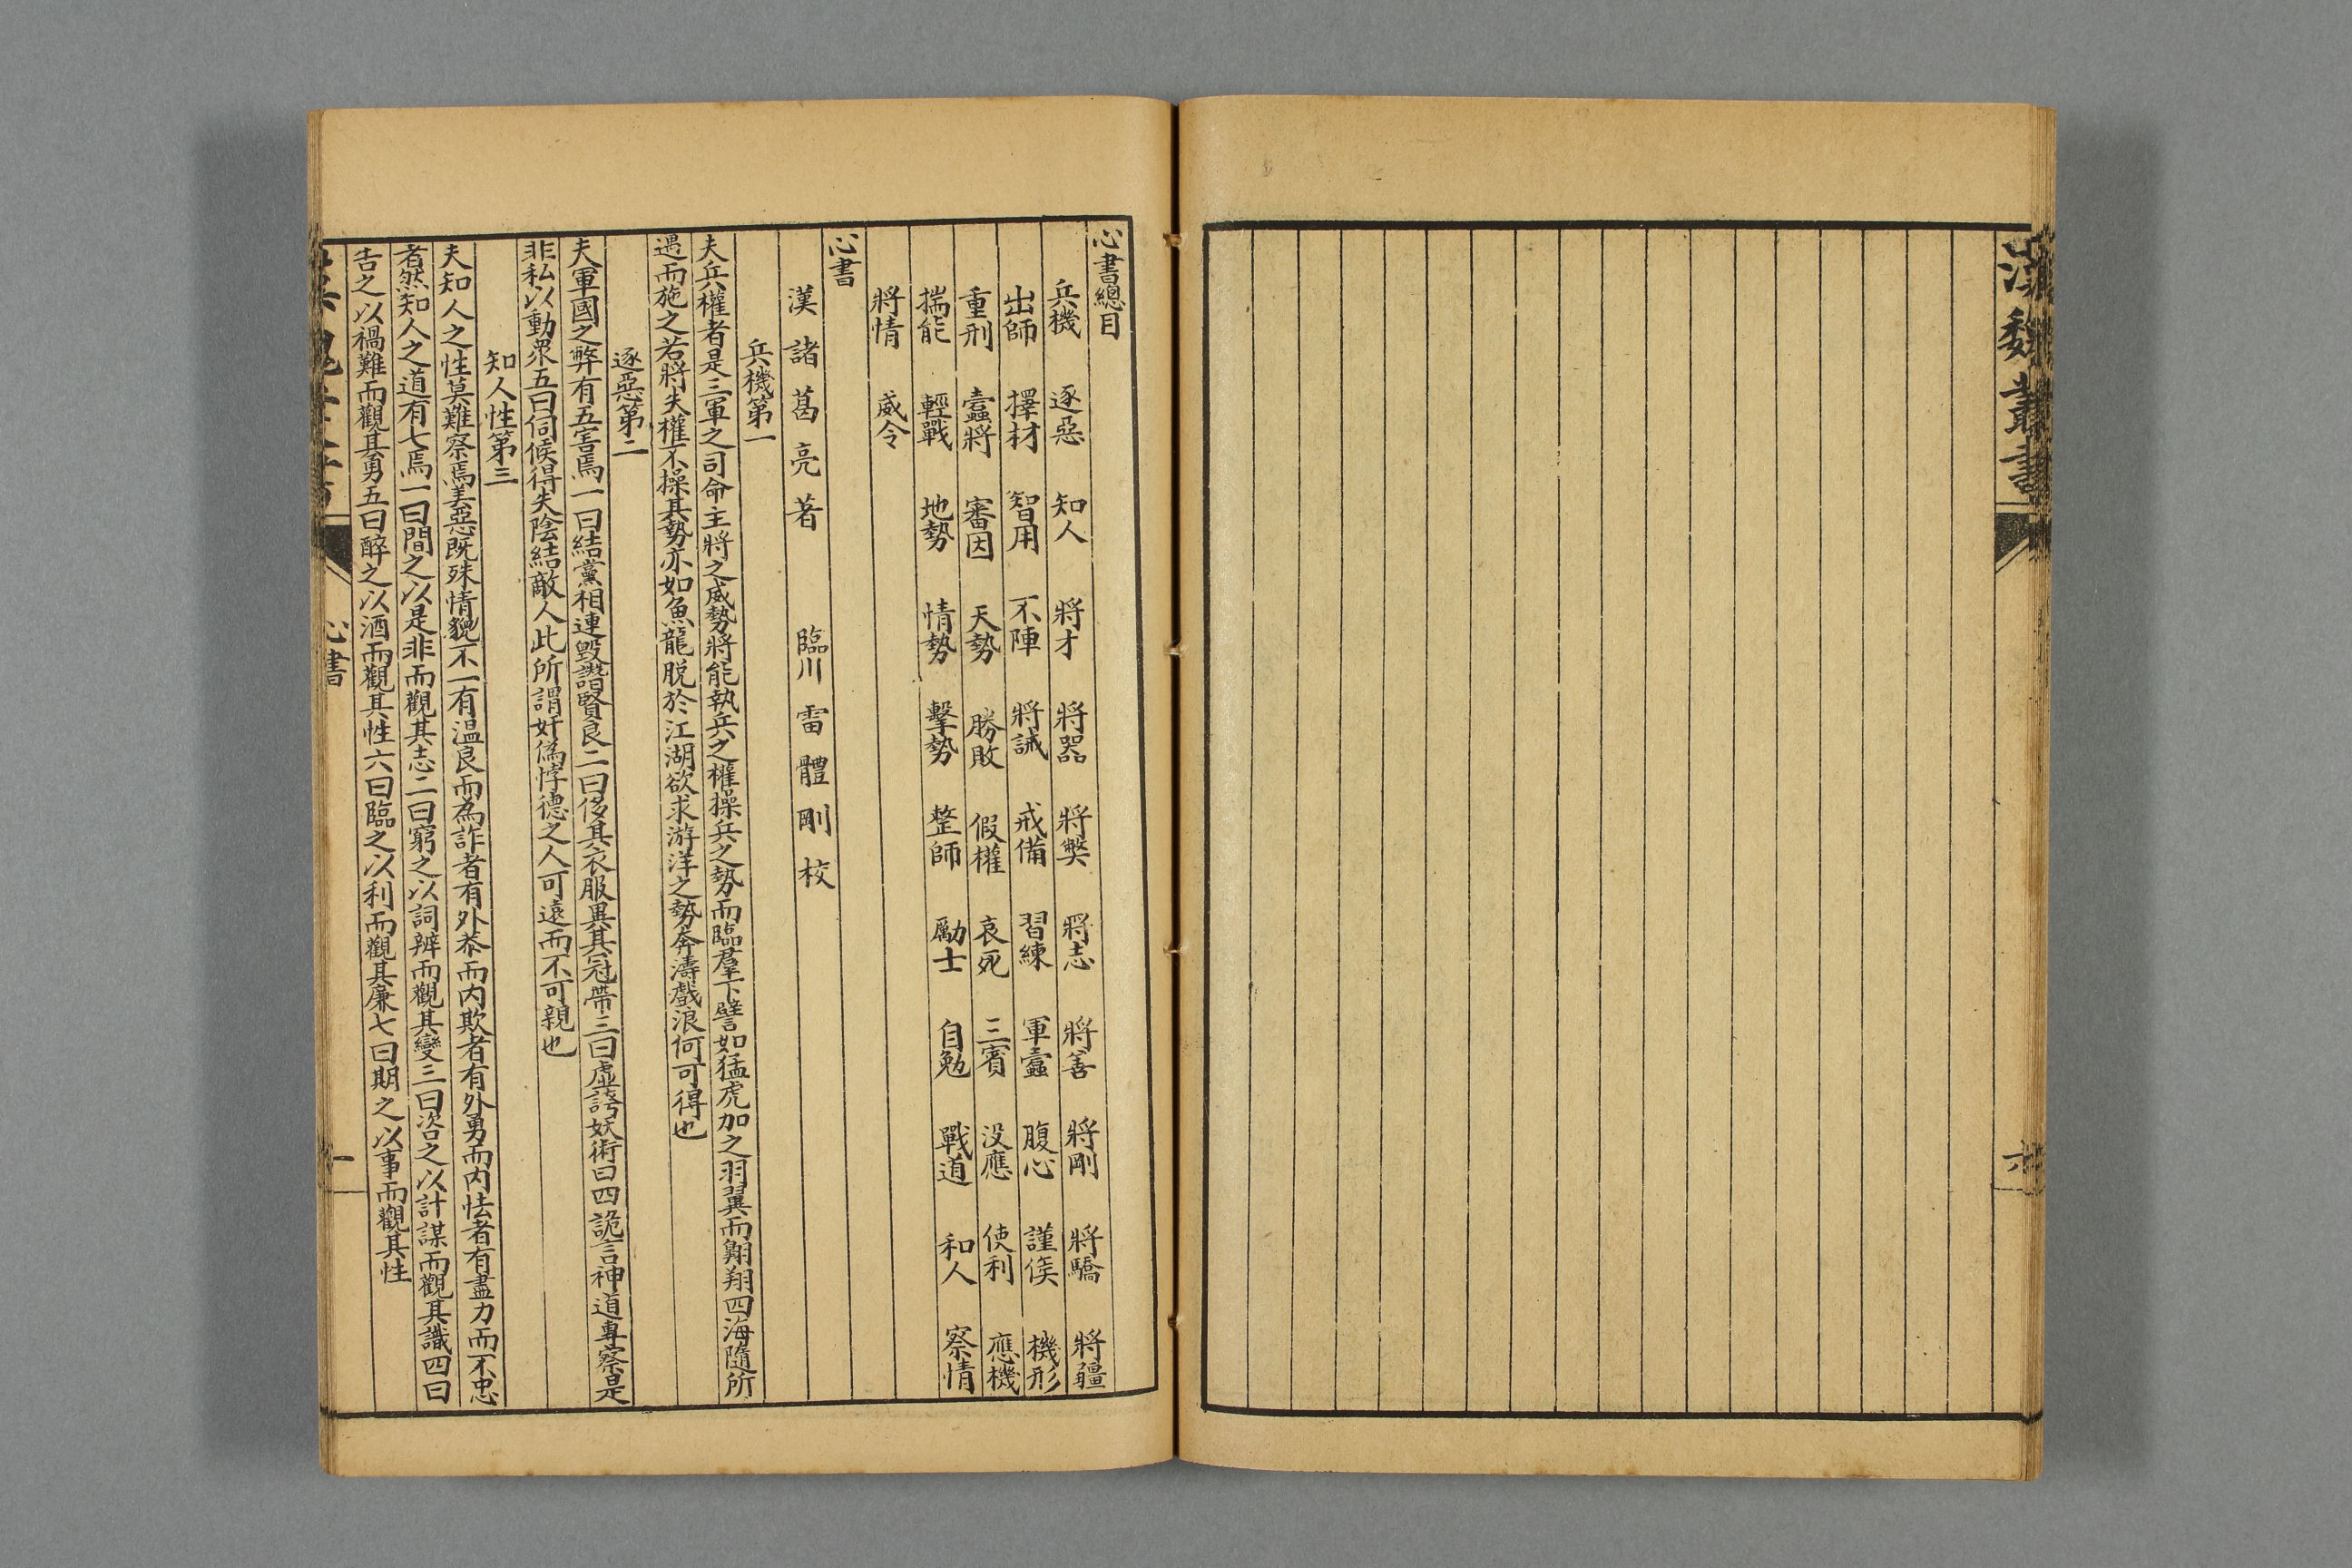 漢魏叢書
六
心書總目
兵機 逐惡 知人 將才 將器 將獘 將志 將善 將剛 將驕 將疆
出師 擇材 智用 不陣 將誡 戒備 習練 軍蠹 腹心 謹候 機形
重刑 蠹將 審因 天勢 勝敗 假權 哀死 三賓 没應 使利 應機
揣能 輕戰 地勢 情勢 擊勢 整師 勵士 自勉 戰道 和人 察情
將情 威令
心書
漢 諸葛亮 著 臨川 雷體剛 校
兵機第一
夫兵權者是三軍之司命主將之威勢將能執兵之權操兵之勢而臨羣下譬如猛虎加之羽翼而翱翔四海隨所
遇而施之若將失權不操其勢亦如魚龍脱於江湖欲求游洋之勢奔濤戲浪何可得也
逐惡第二
夫軍國之弊有五害焉一曰結黨相連毀譖賢良二曰侈其衣服異其冠帶三曰虛誇妖術曰四詭言神道專察是
非私以動衆五曰伺候得失陰結敵人此所謂奸僞悖德之人可遠而不可親也
知人性第三
夫知人之性莫難察焉美惡既殊情貌不一有温良而為詐者有外恭而内欺者有外勇而内怯者有盡力而不忠
者然知人之道有七焉一曰間之以是非而觀其志二曰窮之以詞辨而觀其變三曰咨之以計謀而觀其識四曰
告之以禍難而觀其勇五曰醉之以酒而觀其性六曰臨之以利而觀其廉七曰期之以事而觀其性
心書
一